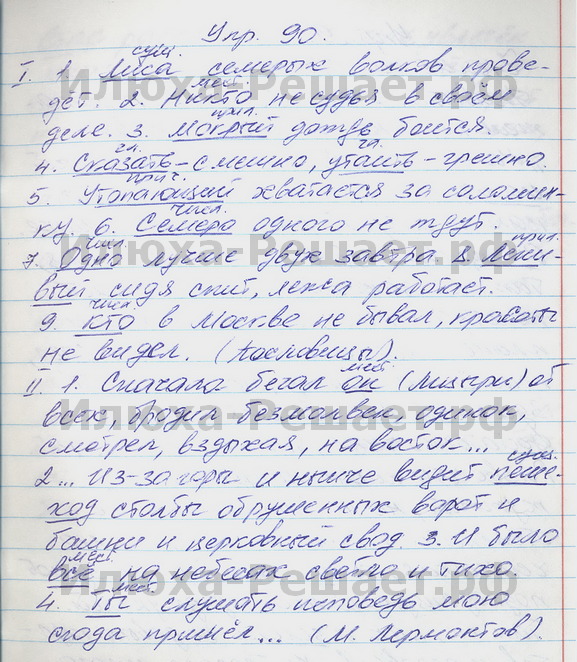 Упр. 90.
сущ.
I. 1. Лиса семерых волков прове-
мест.
дёт. 2. Никто не судья в своём
прил.
деле. 3. Мокрый дождь боится.
гл. гл.
4. Сказать - смешно, утаить - грешно.
прич.
5. Утопающий хватается за соломин-
числ.
ку. 6. Семеро одного не ждут.
числ. прил.
7. Одно лучше двух завтра. 8. Лени-
вый сидя спит, лёжа работает.
9. Кто в Москве не бывал, красоты
не видел. (Пословицы).
мест.
II 1. Сначала бегал он (Мцыри) от
всех, бродил безмолвен, одинок,
смотрел, вздыхая, на восток...
сущ.
2... Из-за горы и нынче видит пеше-
ход столбы обрушенных ворот и
башни и церковный свод. 3. И было
мест.
всё на небесах светло и тихо.
мест.
4. Ты слушать исповедь мою
сюда пришёл... (М. Лермонтов).
Илюха-Решает.рф
Илюха-Решает.рф
Илюха-Решает.рф
Илюха-Решает.рф
Илюха-Решает.рф